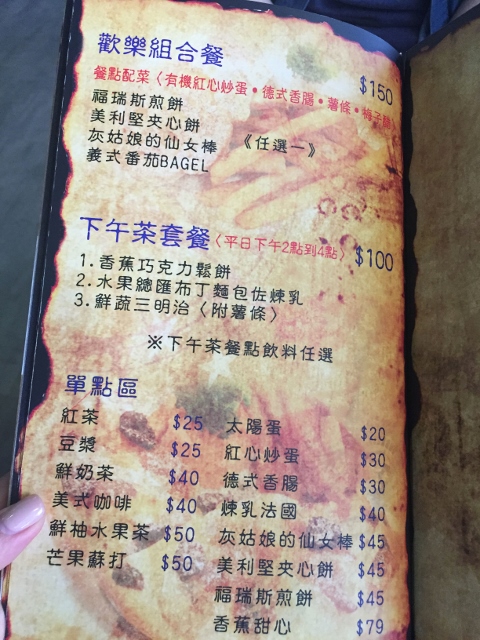 歡樂組合餐 $150
餐點配菜〈有機紅心炒蛋•德式香腸•薯條•梅子
福瑞斯煎餅
美利堅夾心餅
灰姑娘的仙女棒 《任選一》
義式番茄BAGEL
下午茶套餐〈平日下午2點到4點〉 $100
1.香蕉巧克力鬆餅
2.水果總匯布丁麵包佐煉乳
3.鮮蔬三明治〈附薯條〉
※下午茶餐點飲料任選
單點區
紅茶 $25 太陽蛋 $20
豆漿 $25 紅心炒蛋 $30
鮮奶茶 $40 德式香腸 $30
美式咖啡 $40 煉乳法國 $40
鮮柚水果茶 $50 灰姑娘的仙女棒 $45
芒果蘇打 $50 美利堅夾心餅 $45
福瑞斯煎餅 $45
香蕉甜心 $79